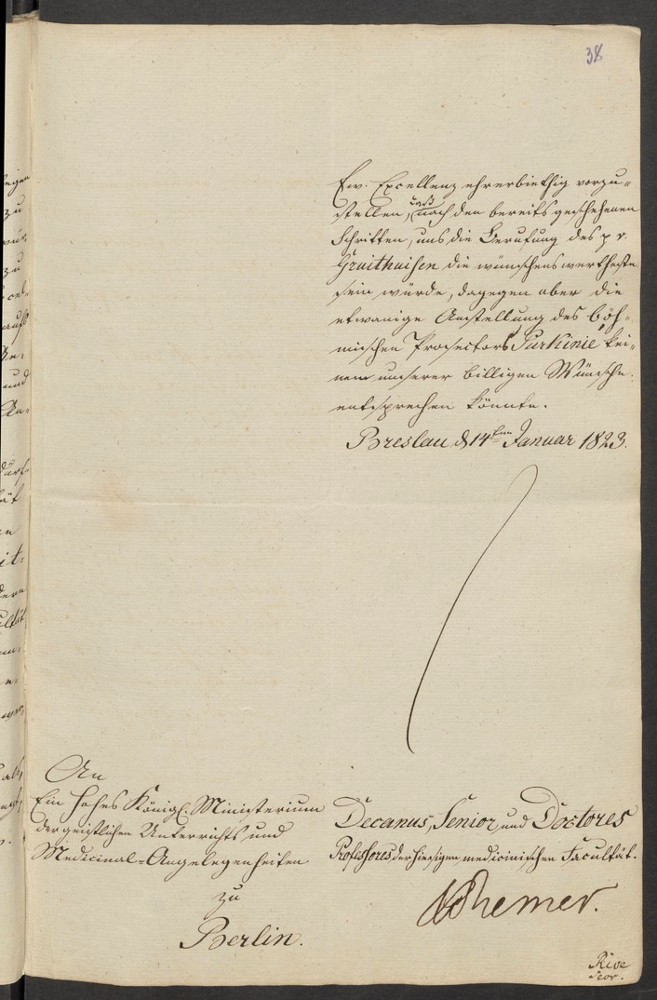 38
Ew. Excellenz ehrerbiethig vorzu-
stellen, daß nach den bereits geschehenen
Schritten, uns die Berufung des p. r.
Gruithuisen die wünschenswertheste
sein würde, dagegen aber die
etwanige Anstellung des böh-
mischen Prosectors Purkinie kei-
nem unserer billigen Wünsche
entsprechen könnte.
Breslau d 14ten Januar 1823.
An
Ein Hohes Königl. Ministerium
der geistlichen Unterrichts und
Medicinal-Angelegenheiten
zu
Berlin.
Decanus, Senior und Doctores
Professores der hiesigen medicinischen Facultät.
Remer.